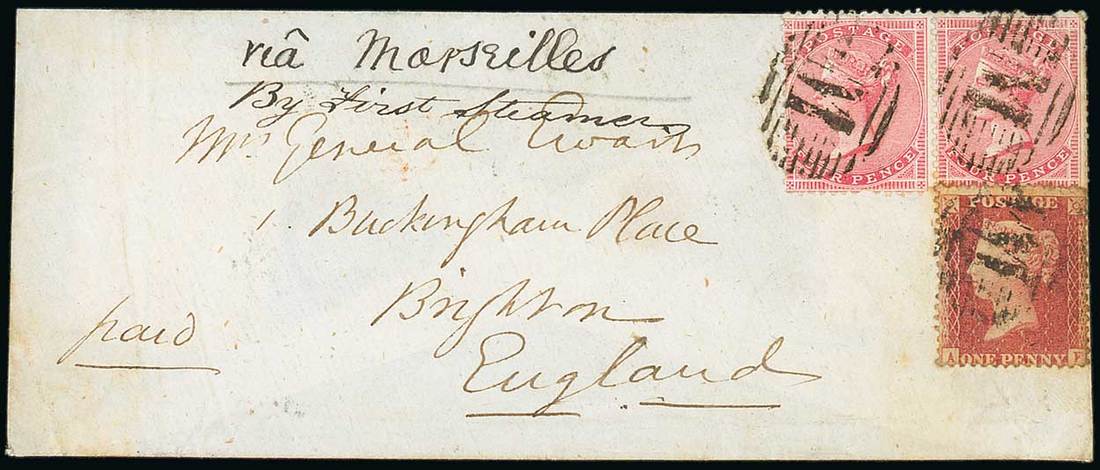 viâ Marseilles
By First Steamer
Mrs General Ewart
1 Buckingham Place
Brighton
England
paid
POSTAGE
FOUR PENCE
POSTAGE
FOUR PENCE
POSTAGE
A ONE PENNY F